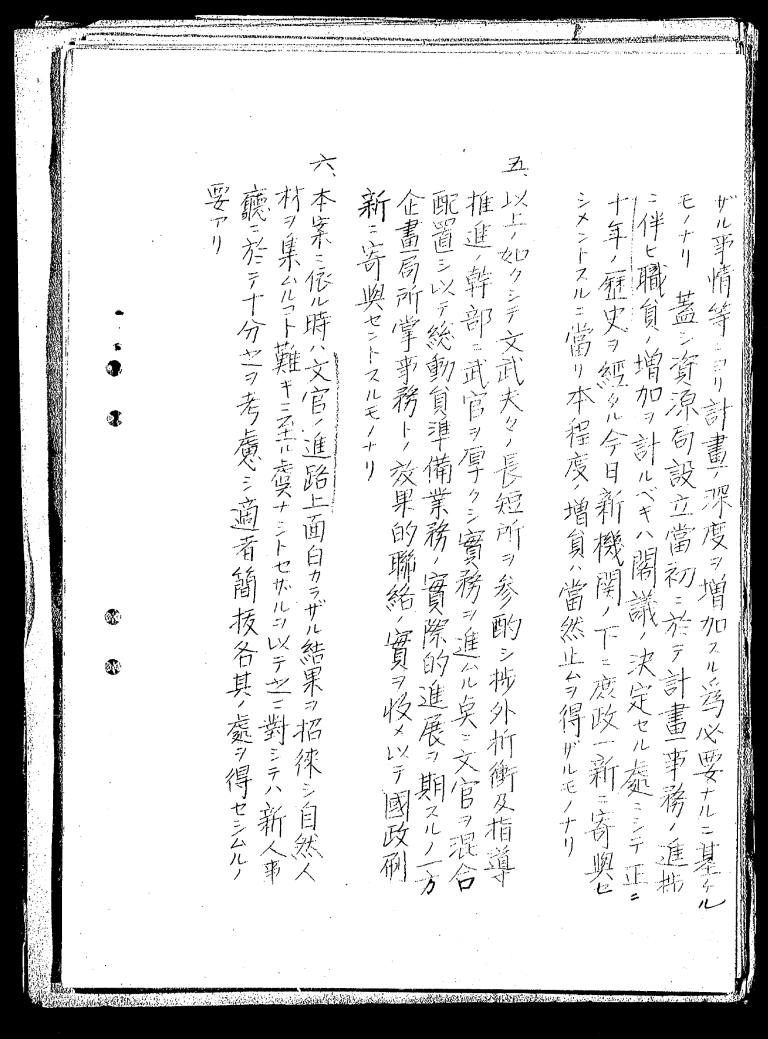 ザル事情等ニヨリ計畫ノ深度ヲ増加スル為必要ナルニ基ケル
モノナリ 蓋シ資源局設立當初ニ於テ計畫事務ノ進捗
ニ伴ヒ職員ノ増加ヲ計ルベキハ閣議ノ決定セル處ニシテ正ニ
十年ノ歴史ヲ經タル今日新機関ノ下ニ庶政一新ニ寄與セ
シメントスルニ當リ本程度ノ増員ハ當然止ムヲ得ザルモノナリ
五、以上ノ如クシテ文武夫々ノ長短所ヲ参酌シ渉外折衝及指導
推進ノ幹部ニ武官ヲ厚クシ實務ヲ進ムル矣ニ文官ヲ混合
配置シ以テ総動員準備業務ノ實際的進展ヲ期スルノ一方
企畫局所掌事務トノ效果的聯絡ノ實ヲ收メ以テ國政刷
新ニ寄與セントスルモノナリ
六、本案ニ依ル時ハ文官ノ進路上面白カラザル結果ヲ招徠シ自然人
材ヲ集ムルコト難キニ至ル虞ナシトセザルヲ以テ之ニ對シテハ新人事
廳ニ於テ十分之ヲ考慮シ適者簡拔各其ノ處ヲ得セシムルノ
要アリ